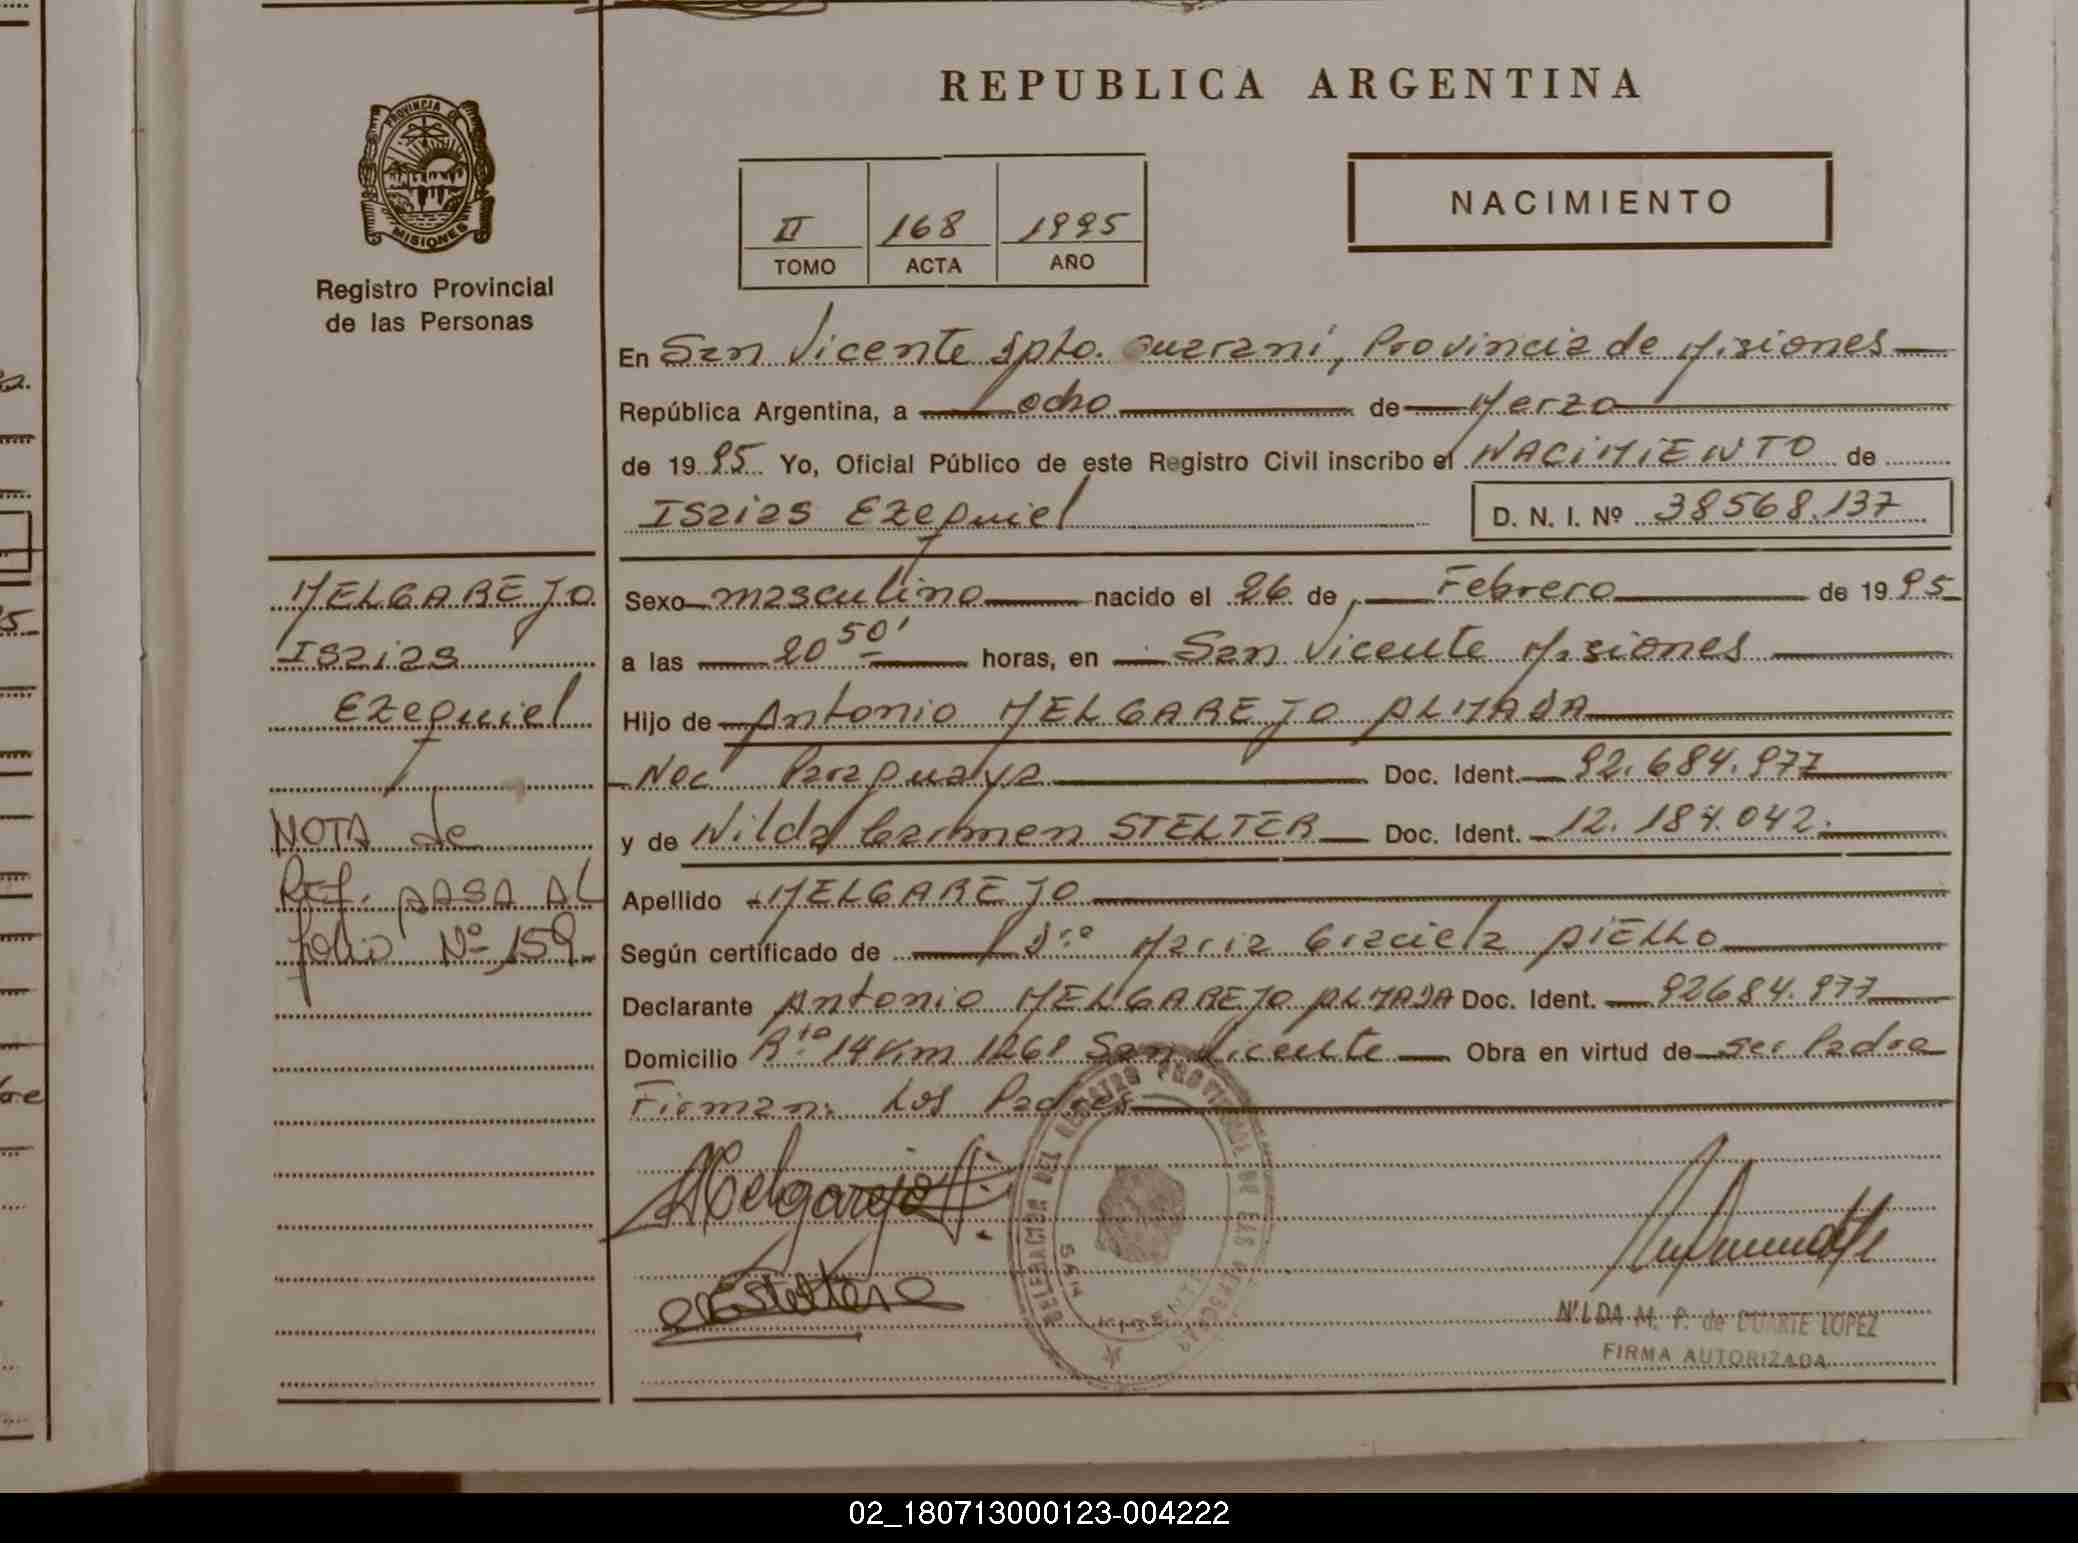 REPUBLICA ARGENTINA
PROVINCIA DE
MISIONES
Registro Provincial
de las Personas
II 168 1995
TOMO ACTA AÑO
NACIMIENTO
En San Vicente Dpto. Guaraní, Provincia de Misiones
República Argentina, a ocho de Marzo
de 1995 Yo, Oficial Público de este Registro Civil inscribo el NACIMIENTO de
Isaias Ezequiel D. N. I. Nº 38568.137
MELGAREJO
Isaias
Ezequiel
NOTA de
Ref. PASA AL
folio Nº 159
Sexo masculino nacido el 26 de Febrero de 1995
a las 20 50' horas, en San Vicente Misiones
Hijo de Antonio MELGAREJO ALMADA
Nac Paraguaya Doc. Ident. 92.684.977
y de Nilda Carmen STELTER Doc. Ident. 12.184.042.
Apellido MELGAREJO
Según certificado de Dra Maria Graciela AIELLO
Declarante Antonio MELGAREJO ALMADA Doc. Ident. 92684.977
Domicilio Rta 14 Km 1261 San Vicente Obra en virtud de ser Padre
Firman: Los Padres
AMelgarejo A.
DELEGACION DEL REGISTRO PROVINCIAL DE LAS PERSONAS
SAN VICENTE
NILDA M. P. de DUARTE LOPEZ
FIRMA AUTORIZADA
02_180713000123-004222